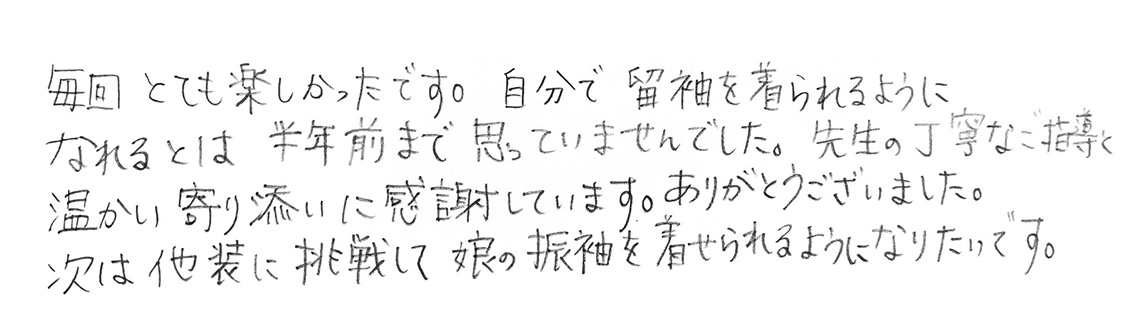 毎回 とても楽しかったです。 自分で 留袖を着られるように
なれるとは 半年前まで 思っていませんでした。先生の丁寧なご指導と
温かい 寄り添いに感謝しています。ありがとうございました。
次は 他装に 挑戦して 娘の振袖を着せられるようになりたいです。